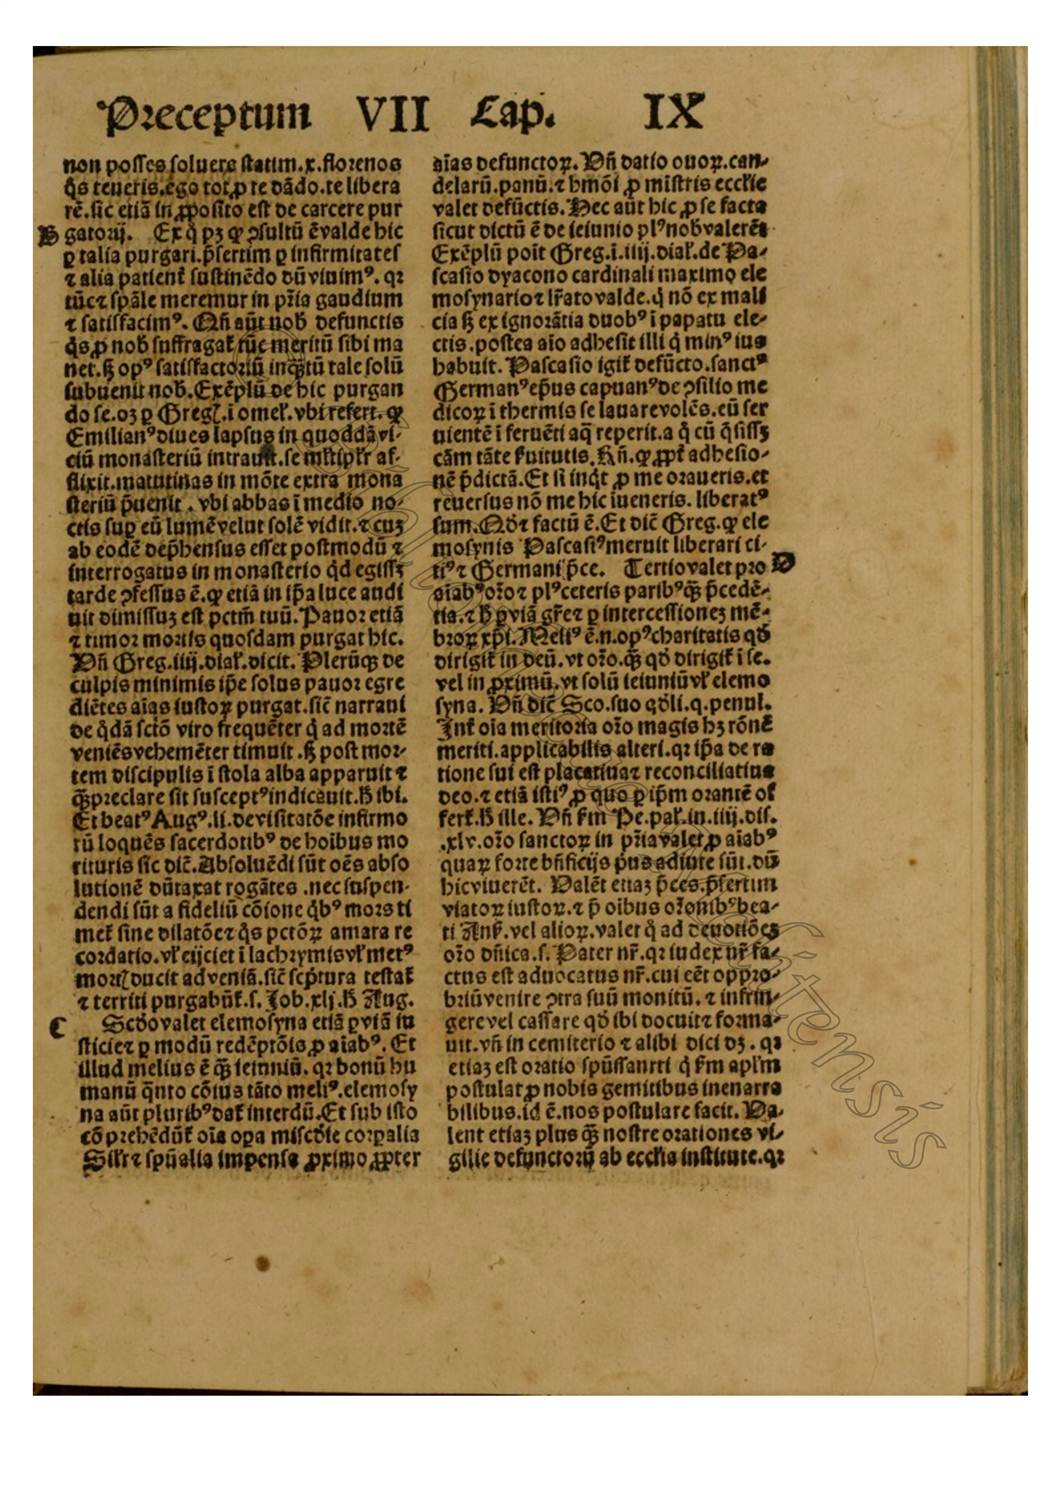 Preceptum VII Cap. IX
non posses soluere statim.x.florenos
q̃s teneris.ego tot ꝓ te dãdo.te libera
rẽ.sic etiã in ꝓposito est de carcere pur
B gatorij. Ex q̃ pꝫ ꝙ ↄsultũ ẽ valde hic
ꝑ talia purgari.p̃sertim ꝑ infirmitates
⁊ alia patient̃ sustinẽdo dũ viuimꝰ. qꝛ
tũc⁊ spãle meremur in pr̃ia gaudium
⁊ satisfacimꝰ. Qñ aũt nob̃ defunctis
q̃s ꝓ nob̃ suffragat̃ tũc meritũ sibi ma
net.sꝫ opꝰ satisfactoriũ inq̃tũ tale solũ
subuenit nob̃. Exẽplũ de hic purgan
do se.oꝫ ꝑ Greg̃.ĩ omel̃. vbi refert. ꝙ
Emilianꝰ diues lapsus in quoddã vi-
ciũ monasteriũ intrauit.se ml̃tipl̃r af-
flixit.matutinas in mõte extra mona
steriũ p̃uenit. vbi abbas ĩ medio no-
ctis suꝑ eũ lumẽ velut solẽ vidit.⁊ cuꝫ
ab eodẽ dep̃hensus esset postmodũ ⁊
interrogatus in monasterio qd̃ egissꝫ
tarde ↄfessus ẽ.ꝙ etiã in ip̃a luce audi
uit dimissuꝫ est pctm̃ tuũ. Pauor etiã
⁊ timor mortis quosdam purgat hic.
Vñ Greg.iiij.dial̃.dicit. Plerũqꝫ de
culpis minimis ip̃e solus pauor egre
diẽtes aĩas iustoꝝ purgat.sic̃ narraui
de q̃dã sctõ viro frequẽter q̃ ad mortẽ
veniẽs vehemẽter timuit.sꝫ post mor-
tem discipulis ĩ stola alba apparuit ⁊
q̃ꝫ preclare sit susceptꝰ indicauit.h̃ ibi.
Et beatꝰ Augꝰ.li.de visitatõe infirmo
rũ loquẽs sacerdotibꝰ de hoibus mo
rituris sic dic̃. Absoluẽdi sũt oẽs abso
lutionẽ dũtaxat rogãtes .nec suspen-
dendi sũt a fideliũ cõione q̃bꝰ mors ti
met̃ sine dilatõe⁊ q̃s pctõꝝ amara re
cordatio.vl̃ eijciet ĩ lachrymis vl̃ metꝰ
mort̃ ducit ad veniã.sic̃ scp̃tura testat̃
⁊ territi purgabũt̃.s. Job.xlj.h̃ Aug.
C Scd̃o valet elemosyna etiã ꝑ viã iu
sticie⁊ ꝑ modũ redẽptõis ꝓ aĩabꝰ. Et
illud melius ẽ q̃ꝫ ieiuniũ. qꝛ bonũ hu
manũ q̃nto cõius tãto meliꝰ.elemosy
na aũt pluribꝰ dat̃ interdũ. Et sub isto
cõprehẽdũt̃ oĩa oꝑa misc̃die corꝑalia
Sil̃r⁊ spũalia impensa ꝓximo ꝓpter
aĩas defunctoꝝ. Vñ datio ouoꝝ.can-
delarũ.panũ.⁊ hm̃õi ꝓ mistris eccl̃ie
valet defũctis. Hec aũt hic ꝓ se facta
sicut dictũ ẽ de ieiunio plꝰ nob̃ valerẽt
Exẽplũ poĩt Greg.i.iiij.dial̃.de Pa-
scasio dyacono cardinali maximo ele
mosynario⁊ lr̃ato valde.q̃ nõ ex mali
cia sꝫ ex ignorãtia duobꝰ ĩ papatu ele-
ctis.postea aĩo adhesit illi q̃ minꝰ ius
habuit. Pascasio igit̃ defũcto.sanctꝰ
Germanꝰ ep̃us capuanꝰ de ↄsilio me
dicoꝝ ĩ thermis se lauare volẽs.eũ ser
uientẽ ĩ feruẽti aq̃ reperit.a q̃ cũ q̃sissꝫ
cãm tãte s̃uitutis. Rñ.ꝙ ꝓpt̃ adhesio-
nẽ p̃dictã. Et si inq̃t ꝓ me oraueris.et
reuersus nõ me hic iueneris. liberatꝰ
sum. Qd̃⁊ factũ ẽ. Et dic̃ Greg.ꝙ ele
mosynis Pascasiꝰ meruit liberari ci-
tiꝰ ⁊ Germani p̃ce. Tertio valet pro D
aĩabꝰ or̃o⁊ plꝰ ceteris paribꝰ q̃ꝫ p̃cedẽ-
tia.⁊ h̃ ꝑ viã gr̃e⁊ ꝑ intercessioneꝫ mẽ-
broꝝ xp̃i. Meliꝰ ẽ.n.opꝰ charitatis qd̃
dirigit̃ in deũ.vt or̃o.q̃ꝫ qd̃ dirigit̃ ĩ se.
vel in ꝓximũ.vt solũ ieiuniũ vl̃ elemo
syna. Vñ dic̃ Sco.suo qd̃li.q.penul̃.
Int̃ oĩa meritoria or̃o magis hꝫ rõnẽ
meriti.applicabilis alteri.qꝛ ip̃a de ra
tione sui est placatiua⁊ reconciliatiua
deo.⁊ etiã istiꝰ ꝓ quo ꝑ ip̃m orantẽ of
fert̃.h̃ ille. Vñ s̃m Pe.pal̃.in.iiij.dis.
.xlv.or̃o sanctoꝝ in pr̃ia valet ꝓ aĩabꝰ
quaꝝ forte bñficijs p̃us adiute sũt.dũ
hic viuerẽt. Valẽt etiaꝫ p̃ces.p̃sertim
viatoꝝ iustoꝝ.⁊ p̃ oibus or̃onibꝰ bea-
ti Ant̃.vel alioꝝ.valet q̃ ad deuotiõeꝫ
or̃o dñica.s. Pater nr̃.qꝛ iudex nr̃ fa-
ctus est aduocatus nr̃.cui cẽt oppro-
briũ venire ↄtra suũ monitũ.⁊ infrin-
gere vel cassare qd̃ ibi docuit⁊ forma-
uit.vñ in cemiterio ⁊ alibi dici dꝫ. qꝛ
etiaꝫ est oratio spũssancti q̃ s̃m apl̃m
postulat ꝓ nobis gemitibus inenarra
bilibus.id ẽ.nos postulare facit. Va-
lent etiaꝫ plus q̃ꝫ nostre orationes vi-
gilie defunctorũ ab eccl̃ia institute.qꝛ